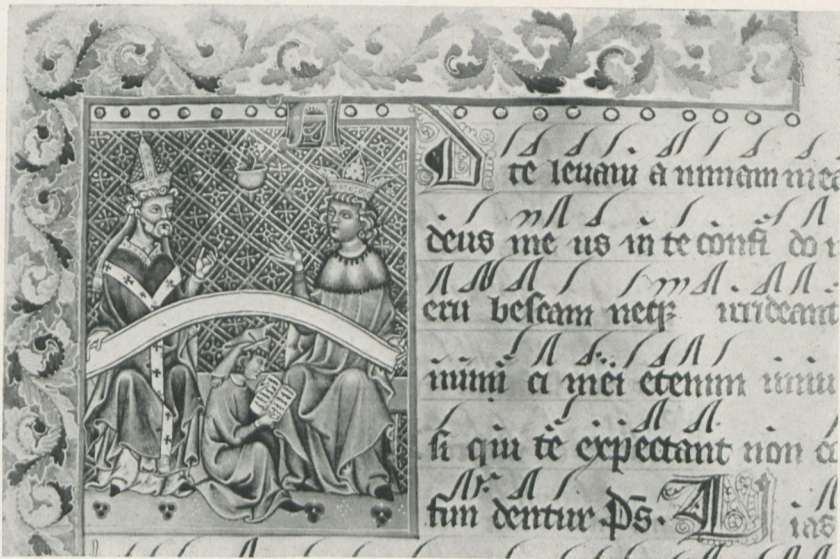 A D te leuaui a nimam mea
deus me us in te confi do
eru bescam neqꝫ irrideant
inimi ci mei etenim uniu
si qui te expectant non
fun dentur. Ps. V ias